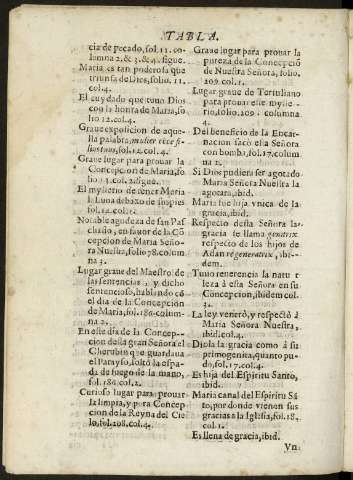 TABLA.
cia de pecado, fol. 11. co-
lumna 2. & 3. & 4. sigue.
Maria es tan poderosa que
triunfa de Dios, folio. 11.
col. 4.
El cuydado que tuuo Dios
con la honra de Maria, fo
lio 12. col. 4.
Graue exposicion de aque-
lla palabra, mulier ecce fi-
lius tuus, fol. 12. col. 4.
Graue lugar para prouar la
Concepcion de Maria, fo
lio 13. col. 2. sigue.
El mysterio de tener Maria
la Luna debaxo de sus pies
fol. 12. col. 1.
Notable agudeza de san Pas
chasio, en fauor de la Cō
cepcion de Maria Seño-
ra Nuestra, folio 78. colum
na 3.
Lugar graue del Maestro de
las sentencias, y dicho
sentencioso, hablando cō
el dia de la Concepcion
de Maria, fol. 180. colum-
na 2.
En este dia de la Concep-
cion desta gran Señora el
Cherubin que guardaua
el Parayso, soltò la espa-
da de fuego de la mano,
fol. 180. col. 2.
Curioso lugar para prouar
la limpia, y pura Concep
cion de la Reyna del Cie
lo, fol. 208. col. 4.
Graue lugar para prouar la
pureza de la Concepciō
de Nuestra Señora, folio.
209. col. 1.
Lugar graue de Tertuliano
para prouar este myste-
rio, folio. 209. columna
4.
Del beneficio de la Encar-
nacion sacò esta Señora
con honba, fol. 17. colum
na 2.
Si Dios pudiera ser agotado
Maria Señora Nuestra la
agotara, ibid.
Maria fue hija vnica de la
gracia, ibid.
Respecto desta Señora la
gracia se llama genitrix
respecto de los hijos de
Adan regeneratrix, ibi-
dem.
Tuuo reuerencia la natu r
leza à esta Señora en su
Concepcion, ibidem col.
3.
La ley venerò, y respectò à
Maria Señora Nuestra,
ibid. col. 4.
Diola la gracia como à su
primogenita, quanto pu-
do, fol. 17. col. 4.
Es hija del Espiritu Santo,
ibid.
Maria canal del Espiritu Sā
to, por donde vienen sus
gracias a la Iglesia, fol. 18.
col. 1.
Es llena de gracia, ibid.
Vn